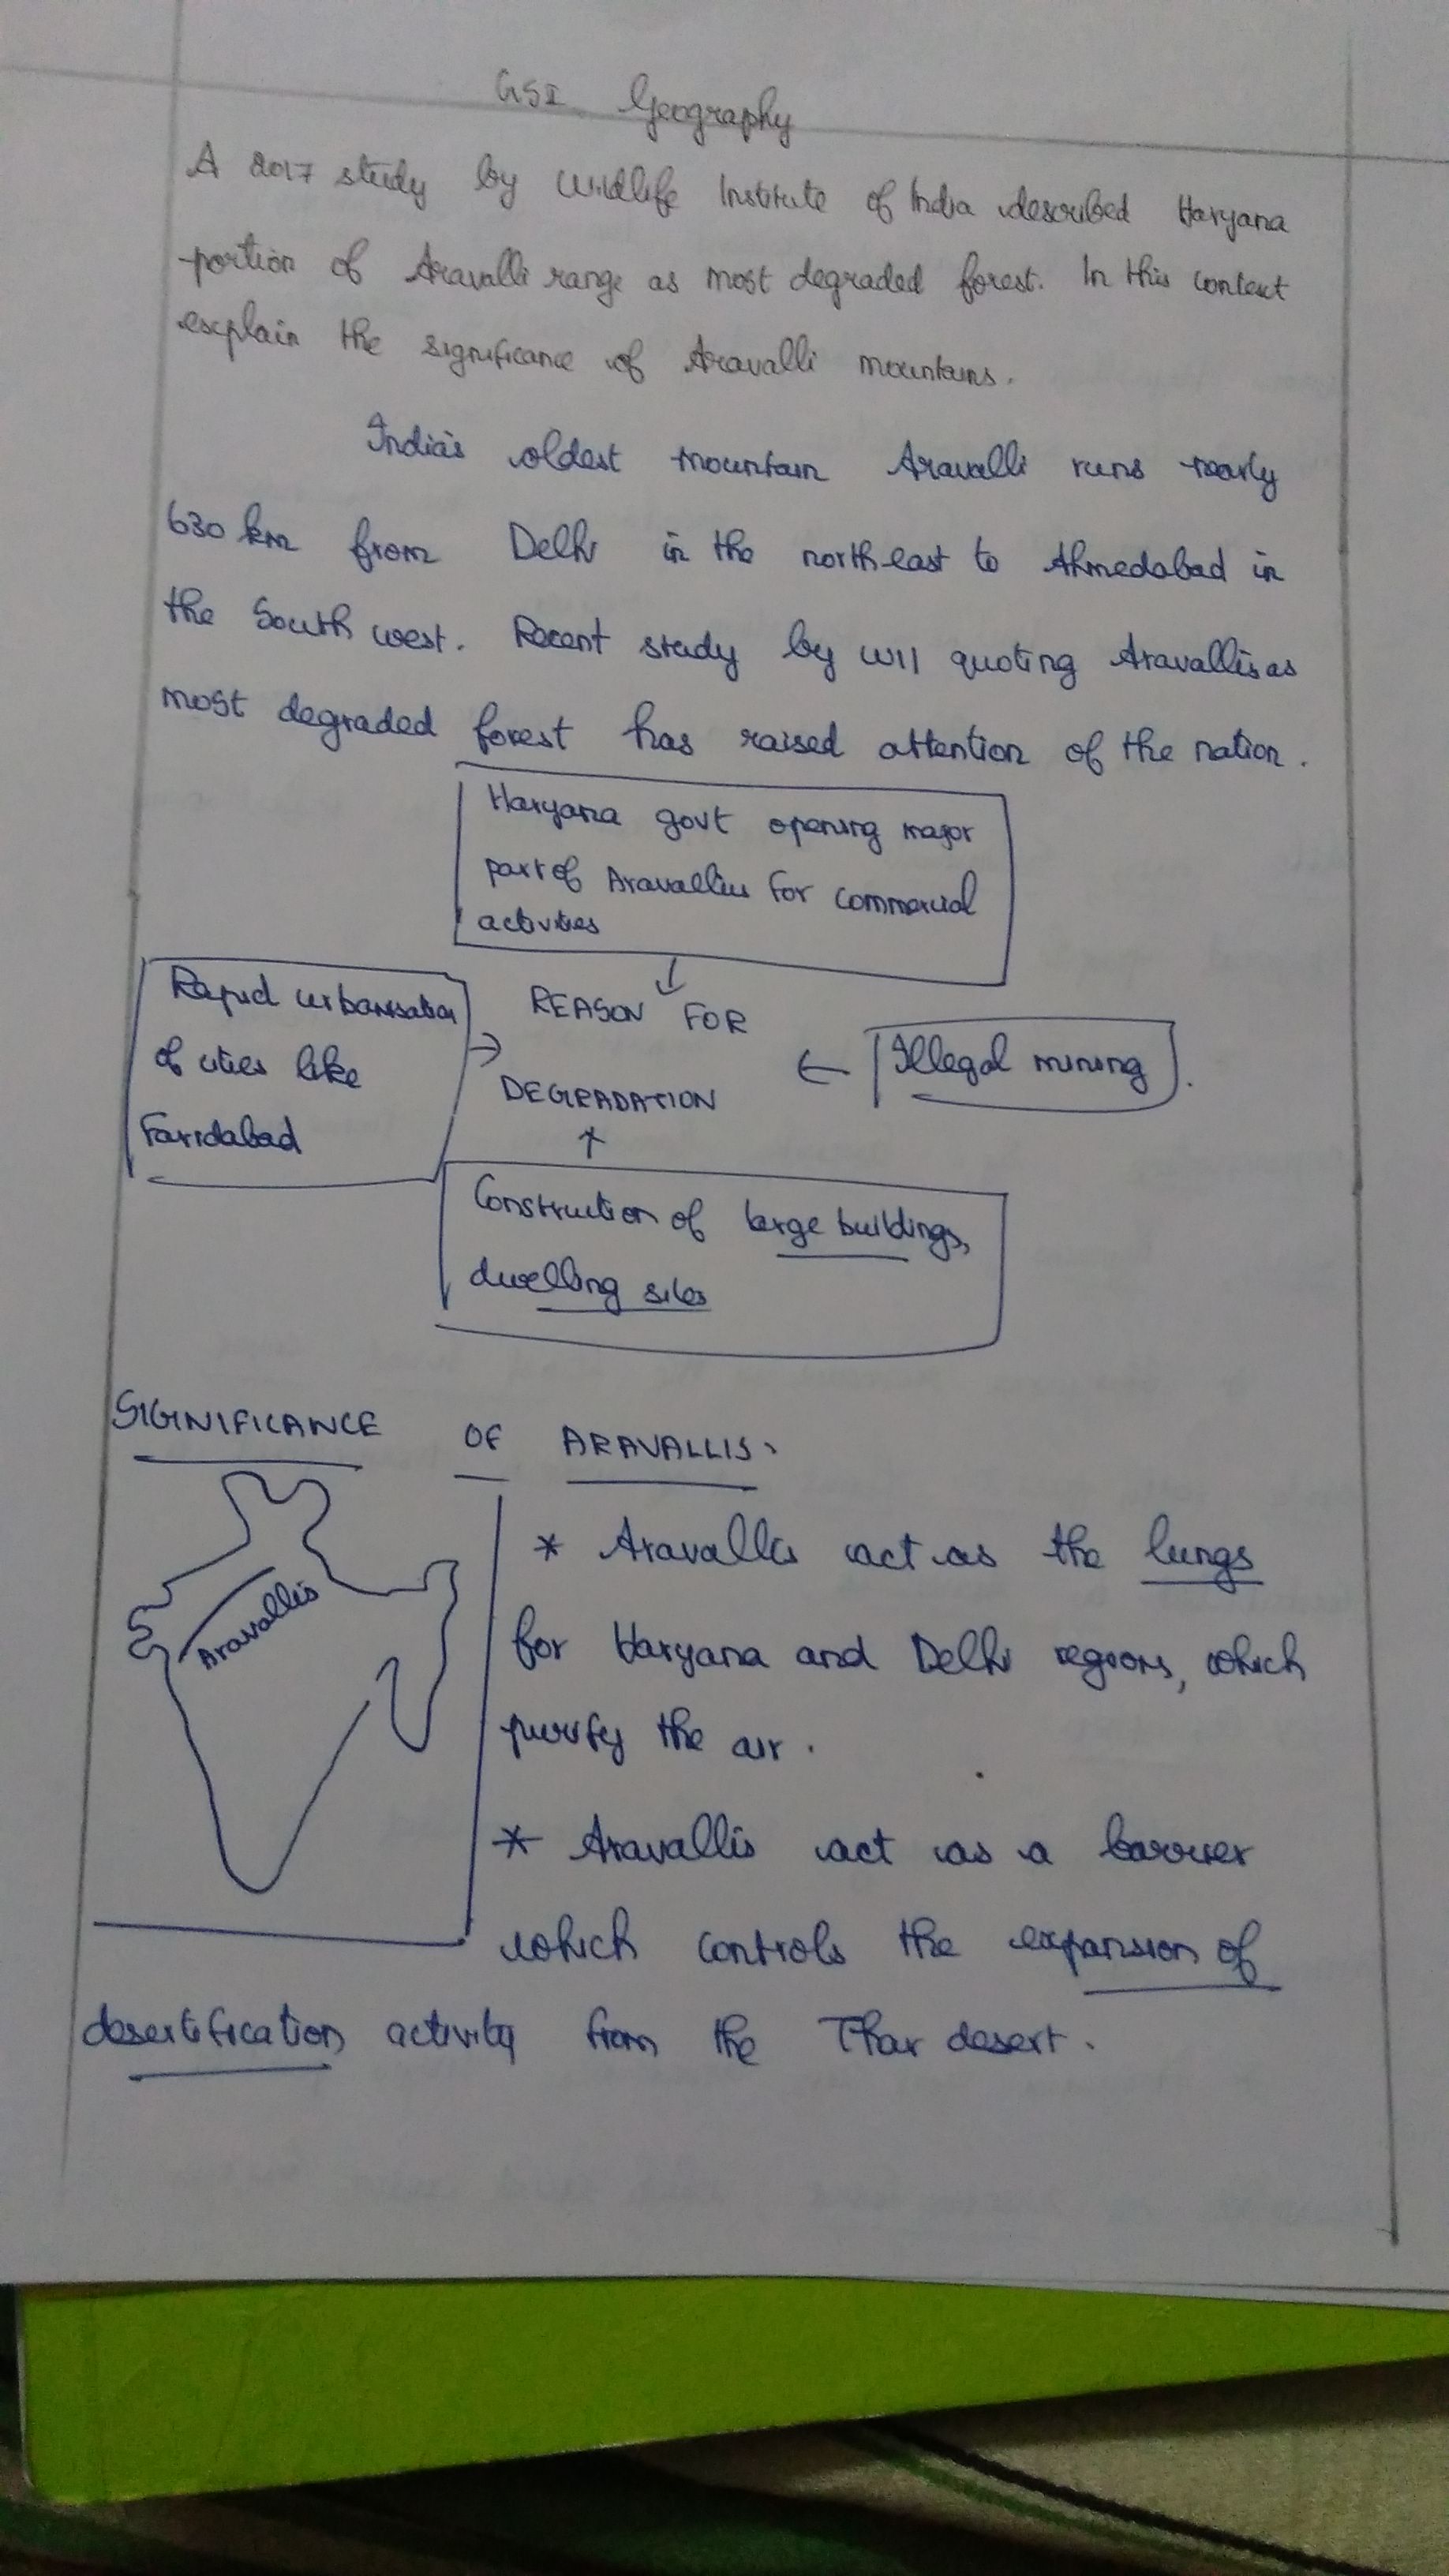 GSI Geography
A 2017 study by Wildlife Institute of India described Haryana
portion of Aravalli range as most degraded forest. In this context
explain the significance of Aravalli mountains.
India's oldest mountain Aravalli runs nearly
630 km from Delhi in the north east to Ahmedabad in
the South west. Recent study by WII quoting Aravallis as
most degraded forest has raised attention of the nation.
Haryana govt opening major
part of Aravallies for commercial
activities
Rapid urbanisation
of cities like
Faridabad
REASON FOR
DEGRADATION
Illegal mining.
Construction of large buildings,
dwelling sites
SIGINIFICANCE OF ARAVALLIS.
Aravallis
* Aravallis act as the lungs
for Haryana and Delhi regions, which
purify the air.
* Aravallis act as a barrier
which controls the expansion of
desertification activity from the Thar desert.